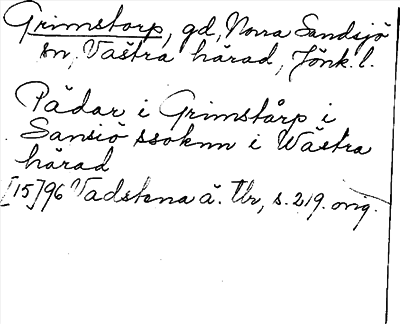 Grimstorp, gd, Norra Sandsjö
sn, Västra härad, Jönk. l.
Pädar i Grimstårp i
Sansiö ssoknn i Wästra
härad
[15]96 Vadstena ä. Tbr, s. 219. orig.